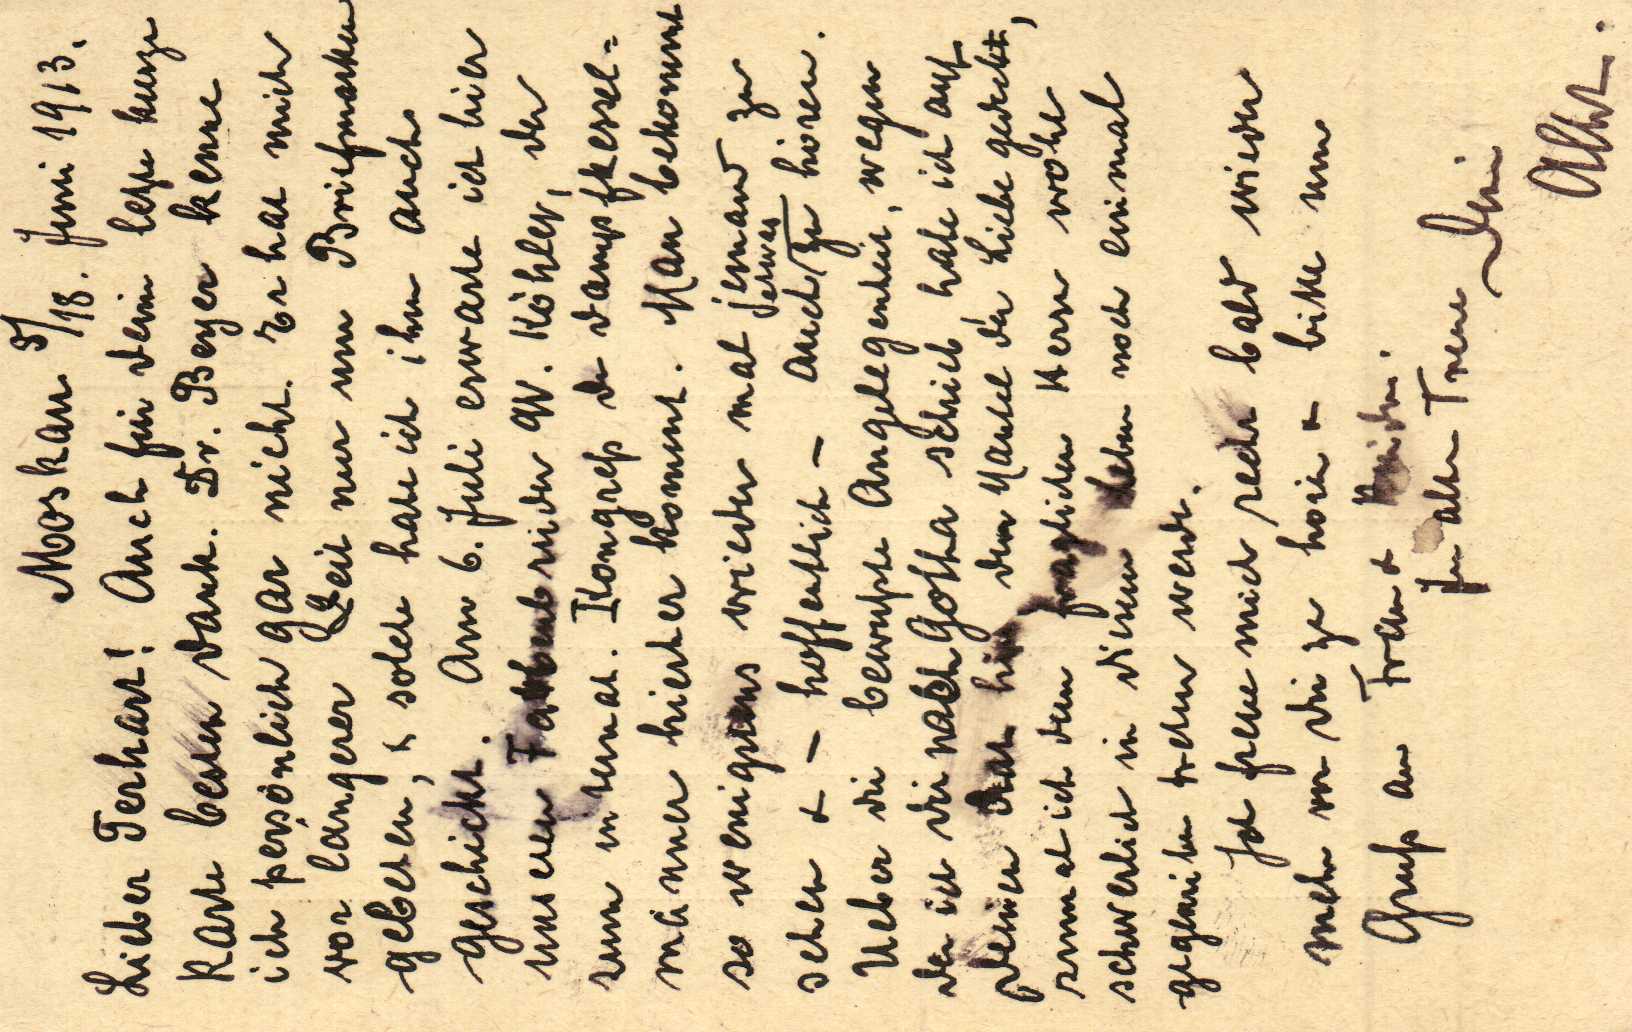 Moskau 5/18. Juni 1913.
Lieber Terhart! Auch für dein letzte kurze
Karte besten Dank. Dr. Beyer kenne
ich persönlich gar nicht. Er hat mich
vor längerer Zeit nur um Briefmarken
gebeten, & solche habe ich ihm auch
geschickt. Am 6. Juli erwarte ich hier
unseren Farbenbruder W. Köhler, der
zum internat. Kongress d. Dampfkessel=
männer hierher kommt. Man bekommt
so wenigstens wieder mal jemand zu
sehen & – hoffentlich – auch etwas zu hören.
Ueber die bewusste Angelegenheit, wegen
der ich dir nach Gotha schrieb habe ich auf
deinen Rat hin den Mantel der Liebe gedeckt,
zumal ich dem fraglichen Herrn wohl
schwerlich in diesem Leben noch einmal
gegenüber treten werde.
Ich freue mich recht bald wieder
mehr von dir zu hören & bitte um
Gruss an Frau &
In alter Treue Dein